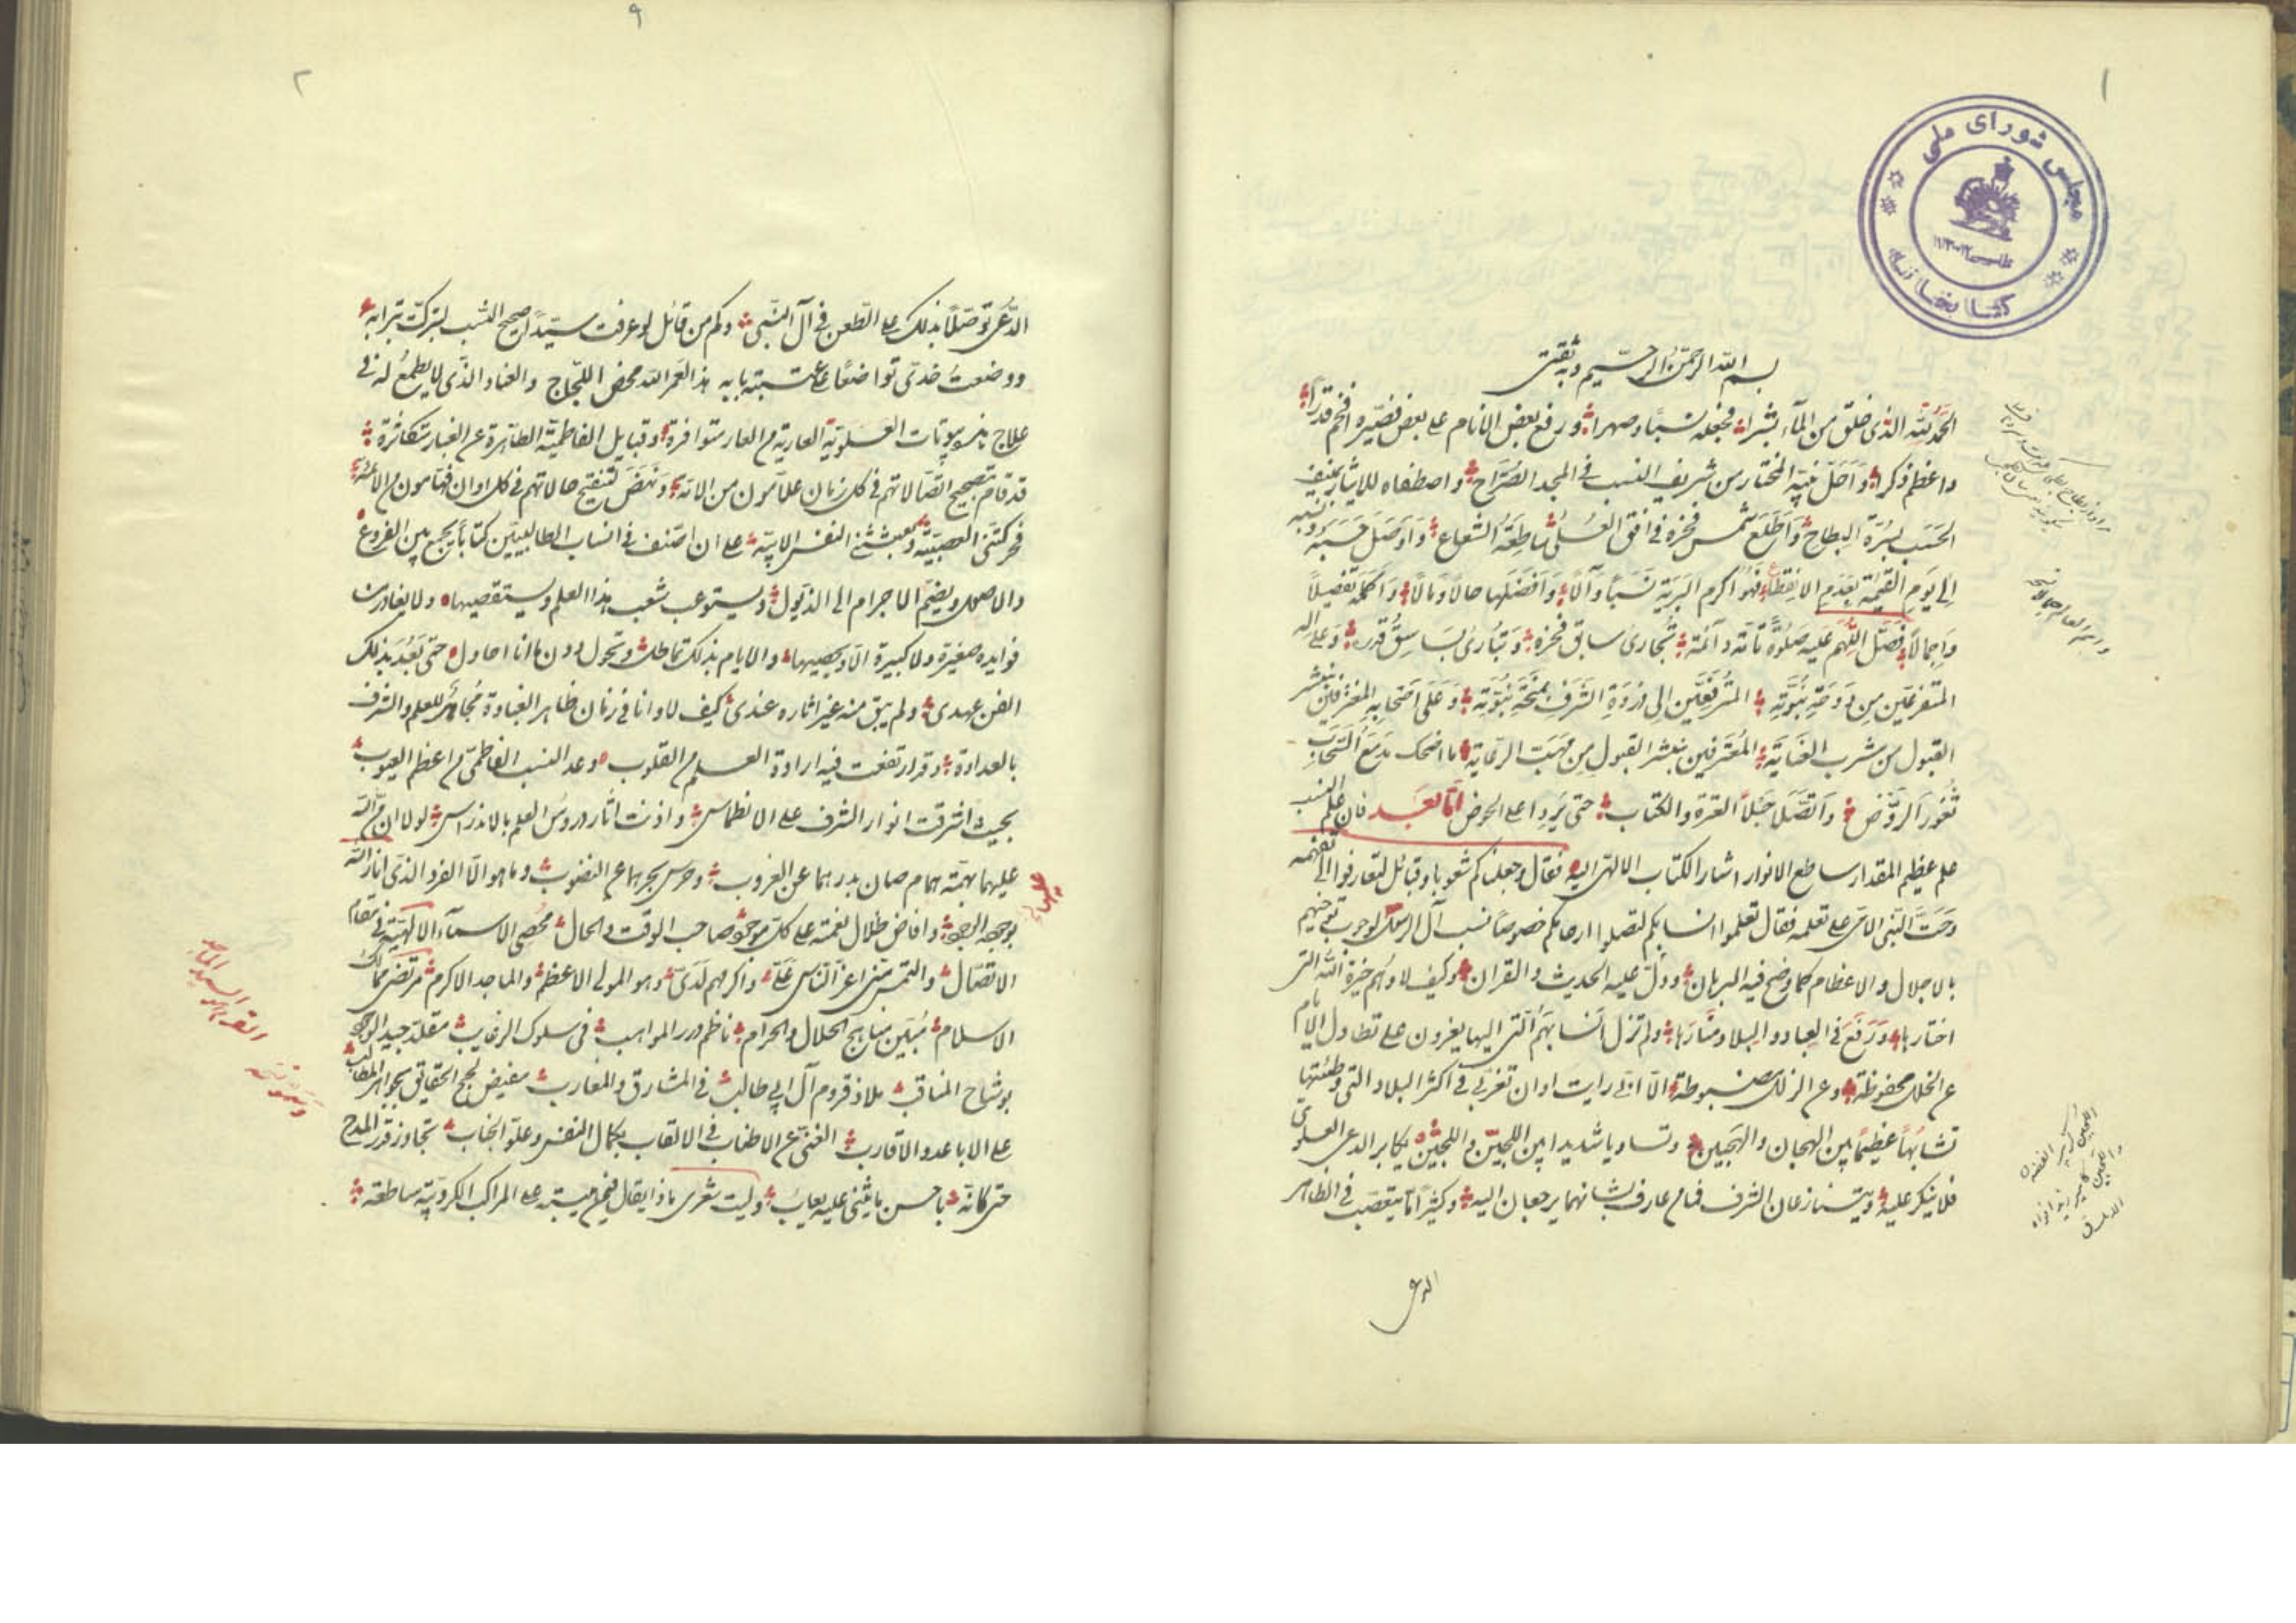 ١
مجلس شورای ملی
کتابخانه
بسم الله الرحمن الرحیم وبه ثقتی
الحمد لله الذی خلق من المآء بشرا فجعله نسبا وصهرا ورفع بعض الانام علی بعض فصیره افخم قدرا
واعظم ذکرا واحل نبیه المختار من شریف النسب فی المجد الصراح واصطفاه للایثار بمنیف
الحسب بسرة البطاح واطلع شمس فخره فی افق العلی ساطعة الشعاع واوصل حسبه ونسبه
الی یوم القیمة بعدم الانقطاع فهو اکرم البریة نسبا وآلا وافضلها حالا ومالا واکمله تفصیلا
واجمالا فصل اللهم علیه صلوة تامة دآئمة تجاری سابق فخره وتباری باسق قدره وعلی اله
المتفرعین من دوحة نبوته المترفعین الی ذروة الشرف بمنحة بنوته وعلی اصحابه المغترفین
القبول من شرب العنایة المعترفین بنشر القبول من مهبت الرعایة ما اضحک مدمع السحاب
ثغور الروض واتصلا حبلا العترة والکتاب حتی یردا علی الحوض اما بعد فان علم النسب
علم عظیم المقدار ساطع الانوار اشار الکتاب الالهی الیه فقال وجعلناکم شعوبا وقبائل لتعارفوا الی تفهمه
وحث النبی الامی علی تعلمه فقال تعلموا انسابکم لتصلوا ارحامکم خصوصا نسب آل الرسول لوجوب توخیهم
بالاجلال والاعظام کما وضح فیه البرهان ودل علیه الحدیث والقران وکیف لا وهم خیرة الله التی
اختارها ورفع فی العباد والبلاد منارها ولم تزل انسابهم التی الیها یعزون علی تطاول الایام
عن الخلل محفوظة وعن الزلل مضبوطة الا انی رایت اوان تغربی فی اکثر البلاد التی وطئتها
تشابها عظیما بین الهجان والهجین وتساویا شدیدا بین اللجین واللجین یکابر الدعی العلوی
فلا ینکر علیه ویتنازعان الشرف فما من عارف بشانهما یرجعان الیه وکثیرا ما یتعصب فی الظاهر
الدعی
٩
٢
الدعی توصلا بذلک علی الطعن فی آل النبی وکم من قائل لو عرفت سیدا صحیح النسب لتبرکت بترابه
ووضعت خدی تواضعا علی عتبة بابه هذا لعمر الله محض اللجاج والعناد الذی لا یطمع له فی
علاج هذه بیوتات العلویة العاریة من العار متوافرة وقبایل الفاطمیة الطاهرة عن الغبار متکاثرة
قد قام بتصحیح اتصالاتهم فی کل زمان علامون من الامة ونهض لتنقیح حالاتهم فی کل اوان فهامون من الائمة
فحرکتنی العصبیة وبعثتنی النفس الابیة علی ان اصنف فی انساب الطالبیین کتابا یجمع بین الفروع
والاصول ویضم الاجرام الی الذیول ویستوعب شعب هذا العلم ویستقصیها ولا یغادر من
فوایده صغیرة ولا کبیرة الا ویحصیها والایام بذلک تماطل وتحول دون ما انا احاول حتی بعد بذلک
الفن عهدی ولم یبق منه غیر اثاره عندی کیف لا وانا فی زمان ظاهر الغباوة مجاهر للعلم والشرف
بالعداوة وقد ارتفعت فیه ارادة العلم من القلوب وعد النسب الفاطمی من اعظم العیوب
بحیث اشرقت انوار الشرف علی الانطماس واذنت اثار دروس العلم بالاندراس لولا ان من الله
علیهما بهمة همام صان بدرهما عن الغروب وحرس بحرهما عن النضوب وما هو الا الفرد الذی انار الله
بوجهه الوجود وافاض ظلال نعمته علی کل موجود صاحب الوقت والحال محصی الاسمآء الالهیة فی مقام
الاتصال والتمس منی اعز الناس علی واکرمهم لدی وهو المولی الاعظم والماجد الاکرم مرتضی ممالک
الاسلام مبین مناهج الحلال والحرام ناظم درر المواهب فی سلوک الرغایب مقلد جید الوجود
بوشاح المناقب ملاذ قروم آل ابی طالب فی المشارق والمغارب مفیض لجج الحقایق بجواهر المطالب
علی الاباعد والاقارب الغنی عن الاطناب فی الالقاب بکمال النفس وعلو الجناب تجاوز قدر المدح
حتی کانه باحسن ما یثنی علیه یعاب ولیت شعری ماذا یقال فیمن مرتبته علی المراکب الکروبیة ساطعة